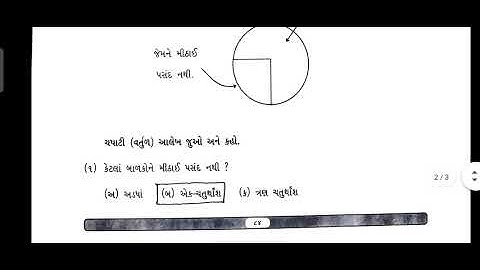 જેમને મીઠાઈ
પસંદ નથી.
ચપાટી (વર્તુળ) આલેખ જુઓ અને કહો.
(૧) કેટલાં બાળકોને મીઠાઈ પસંદ નથી ?
(અ) અડધાં (બ) એક-ચતુર્થાંશ (ક) ત્રણ ચતુર્થાંશ
૮૪
2/3